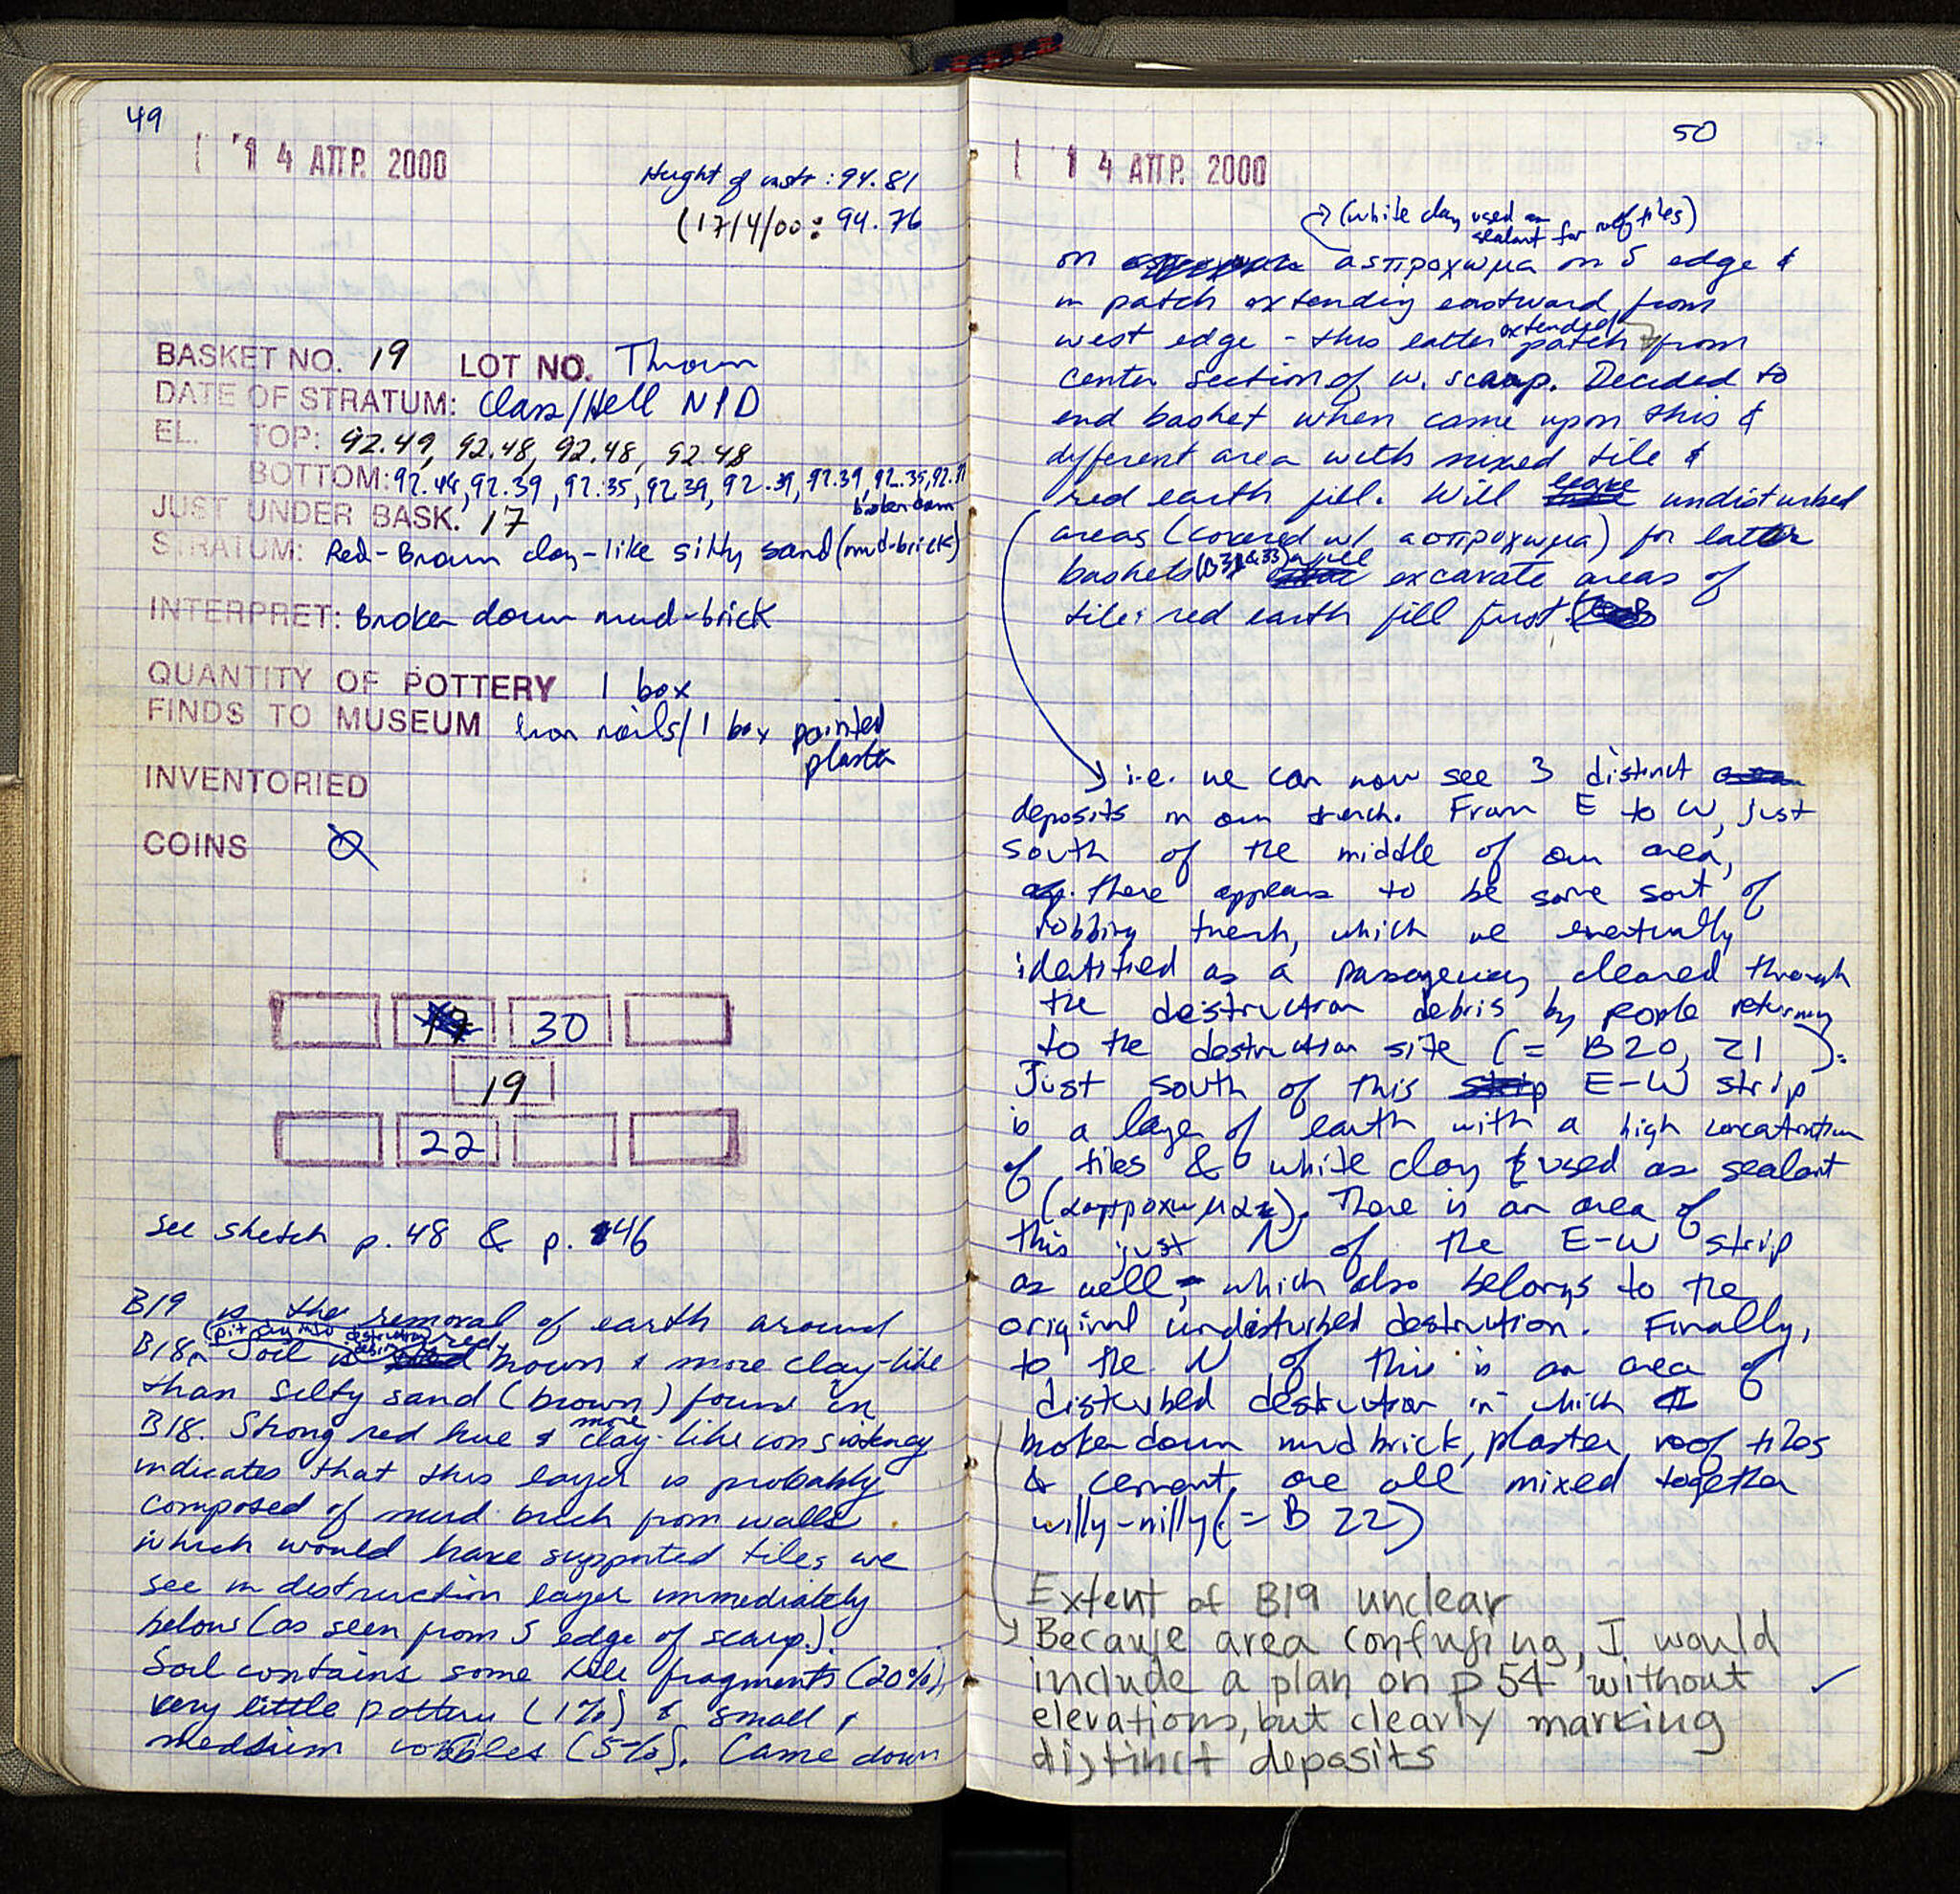 49
14 ΑΠΡ. 2000
Height of instr: 94.81
(17/4/00: 94.76
BASKET NO. 19 LOT NO. Thrown
DATE OF STRATUM: Class/Hell NPD
EL. TOP: 92.49, 92.48, 92.48, 92.48
BOTTOM: 92.44, 92.39, 92.35, 92.39, 92.39, 92.39, 92.35, 92.
JUST UNDER BASK. 17
STRATUM: Red-Brown clay-like silty sand (mud-brick)
broken down
INTERPRET: Broken down mud-brick
QUANTITY OF POTTERY 1 box
FINDS TO MUSEUM Iron nails/1 box painted
plaster
INVENTORIED
COINS Ø
17 30
19
22
see sketch p. 48 & p. 46
B19 is the removal of earth around
(pit dug into destruction debris)
B18. Soil is red brown & more clay-like
than silty sand (brown) found in
B18. Strong red hue & more clay-like consistency
indicates that this layer is probably
composed of mud brick from walls
which would have supported tiles we
see in destruction layer immediately
below (as seen from S edge of scarp).
Soil contains some tile fragments (20%),
very little pottery (1%) & small &
medium cobbles (5%). Came down
50
14 ΑΠΡ. 2000
(white clay used as
sealant for roof tiles)
on ασπροχωμα on S edge &
in patch extending eastward from
west edge - this latter patch extended from
center section of w. scarp. Decided to
end basket when came upon this &
different area with mixed tile &
red earth fill. Will leave undisturbed
areas (covered w/ ασπροχωμα) for later
baskets (B31 & 33) & will excavate areas of
tile; red earth fill first.
i.e. we can now see 3 distinct
deposits in our trench. From E to W, just
south of the middle of our area,
there appears to be some sort of
robbing trench, which we eventually
identified as a passageway cleared through
the destruction debris by people returning
to the destruction site (= B20, 21 ).
Just south of this E-W strip
is a layer of earth with a high concentration
of tiles & white clay used as sealant
(ασπροχωμα). There is an area of
this just N of the E-W strip
as well, which also belongs to the
original undisturbed destruction. Finally,
to the N of this is an area of
disturbed destruction in which
broken down mud brick, plaster, roof tiles
& cement are all mixed together
willy-nilly (= B 22)
Extent of B19 unclear
Because area confusing, I would
include a plan on p 54 without
elevations, but clearly marking
distinct deposits